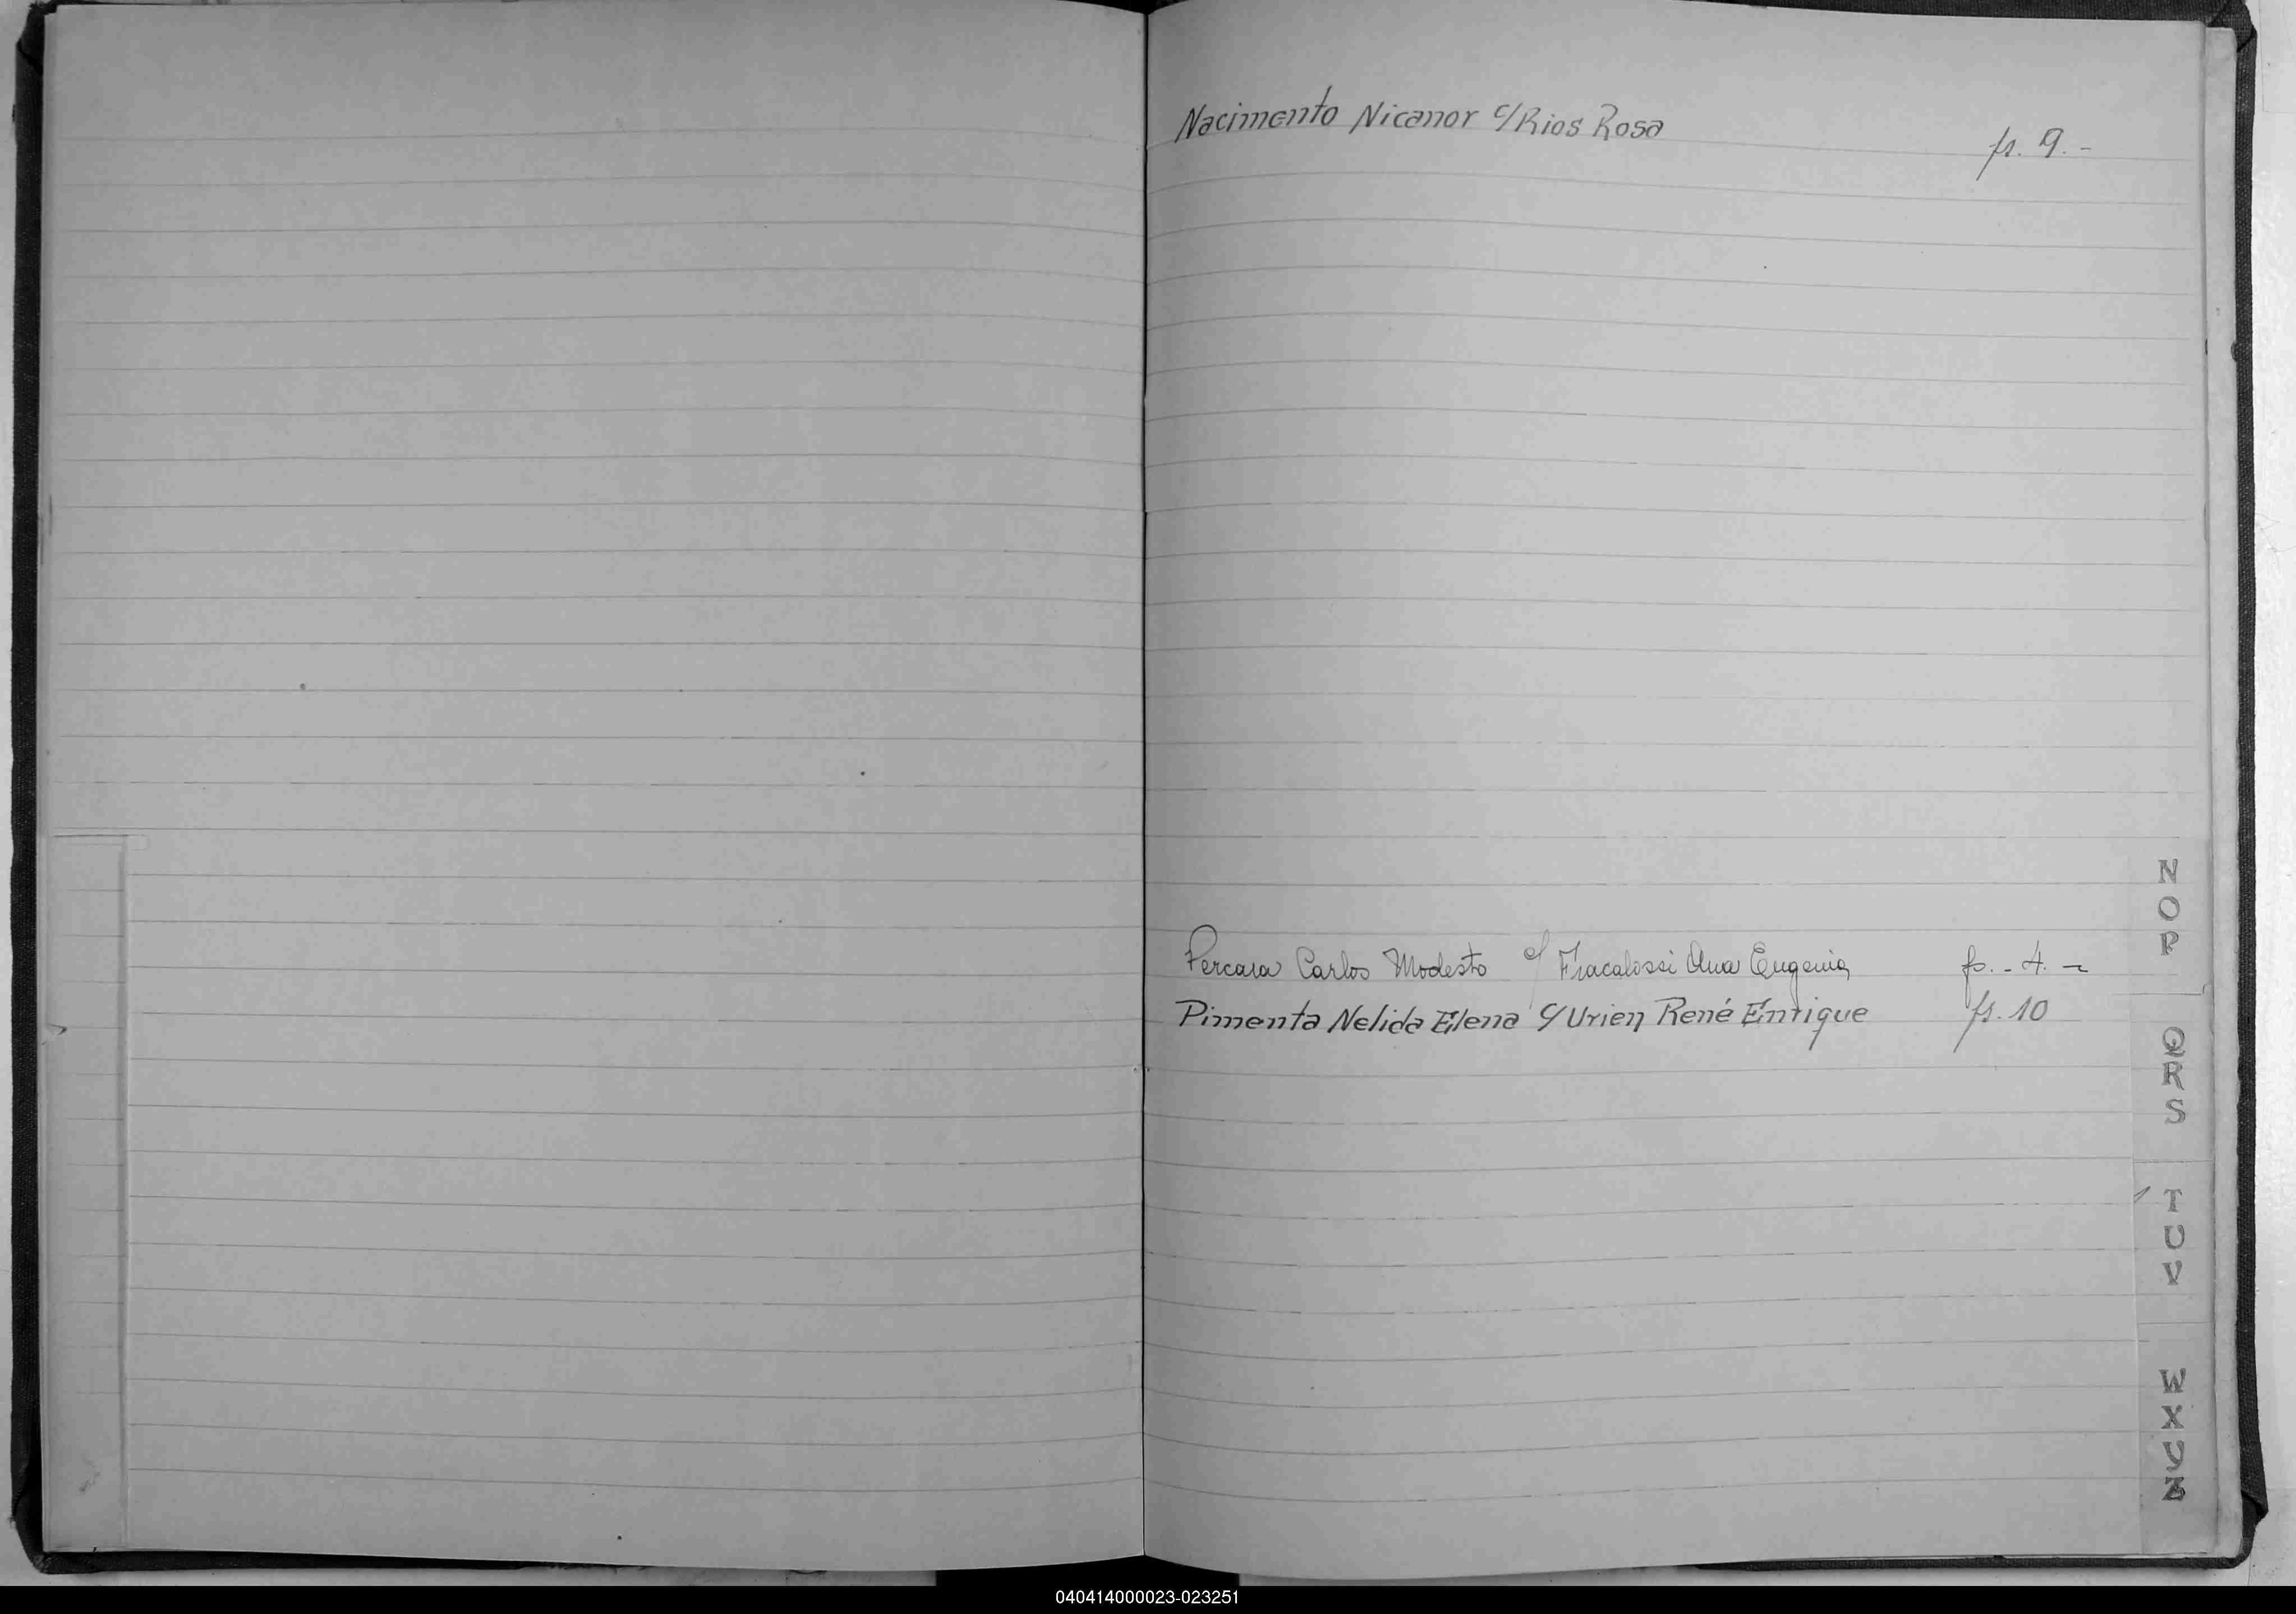 Nacimento Nicanor c/Rios Rosa fs. 9.-
Percara Carlos Modesto c/ Fracalossi Ana Eugenia fs.-4.-
Pimenta Nelida Elena c/Urien René Enrique fs.10
N
O
P
Q
R
S
T
U
V
W
X
Y
Z
040414000023-023251